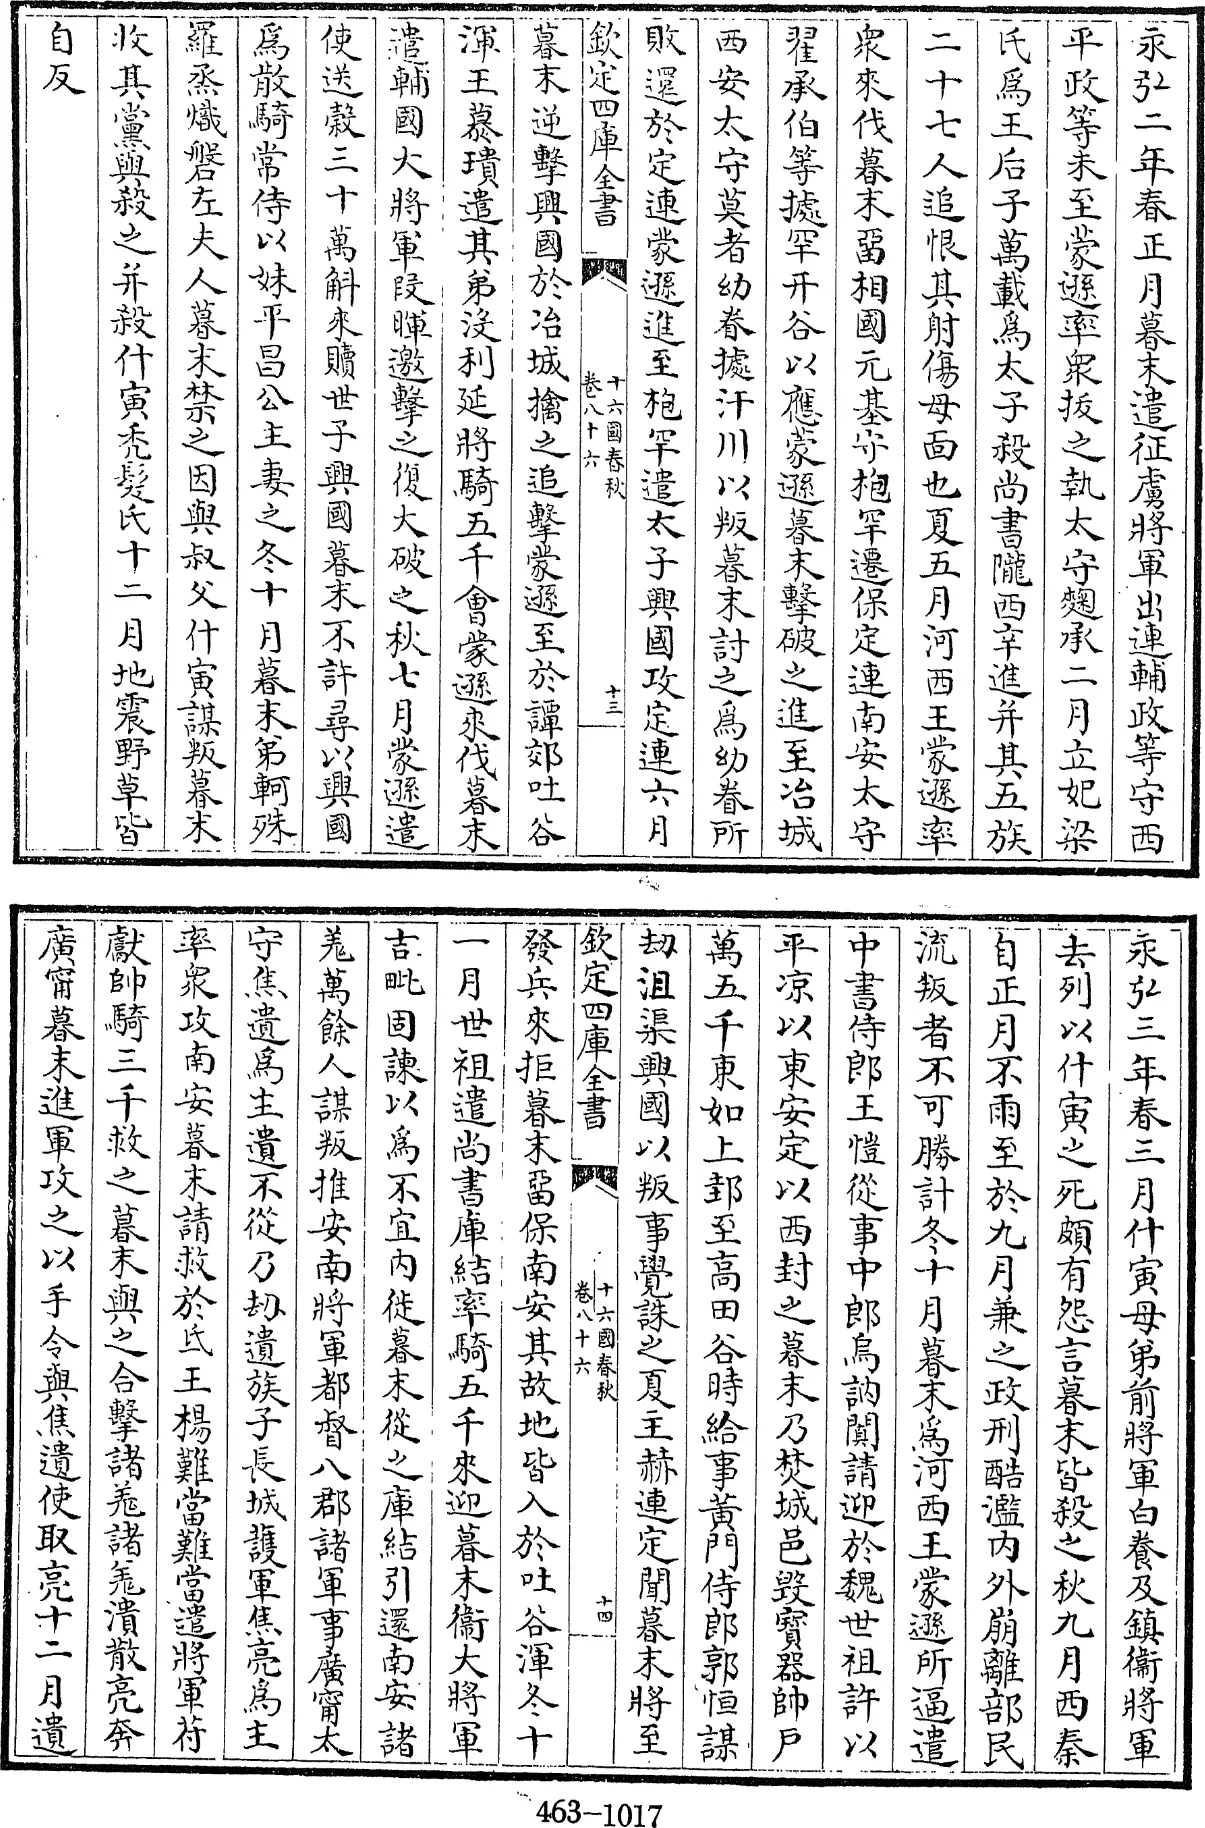 永弘二年春正月暮末遣征虜將軍出連輔政等守西
平政等未至蒙遜率衆拔之執太守麴承二月立妃梁
氏爲王后子萬載爲太子殺尚書隴西辛進并其五族
二十七人追恨其射傷母面也夏五月河西王蒙遜率
衆來伐暮末留相國元基守枹罕遷保定連南安太守
翟承伯等據罕幵谷以應蒙遜暮末擊破之進至冶城
西安太守莫者幼眷據汧川以叛暮末討之爲幼眷所
敗還於定連蒙遜進至枹罕遣太子興國攻定連六月
欽定四庫全書
十六國春秋
卷八十六
十三
暮末逆擊興國於冶城擒之追擊蒙遜至於譚郊吐谷
渾王慕璝遣其弟沒利延將騎五千會蒙遜來伐暮末
遣輔國大將軍段暉邀擊之復大破之秋七月蒙遜遣
使送穀三十萬斛來贖世子興國暮末不許尋以興國
爲散騎常侍以妹平昌公主妻之冬十月暮末弟軻殊
羅烝熾磐左夫人暮末禁之因與叔父什寅謀叛暮末
收其黨與殺之并殺什寅禿髮氏十二月地震野草皆
自反
永弘三年春三月什寅母弟前將軍白養及鎮衛將軍
去列以什寅之死頗有怨言暮末皆殺之秋九月西秦
自正月不雨至於九月兼之政刑酷濫內外崩離部民
流叛者不可勝計冬十月暮末爲河西王蒙遜所逼遣
中書侍郎王愷從事中郎烏訥闐請迎於魏世祖許以
平凉以東安定以西封之暮末乃焚城邑毀寶器帥戶
萬五千東如上邽至高田谷時給事黃門侍郎郭恒謀
劫沮渠興國以叛事覺誅之夏主赫連定聞暮末將至
欽定四庫全書
十六國春秋
卷八十六
十四
發兵來拒暮末留保南安其故地皆入於吐谷渾冬十
一月世祖遣尚書庫結率騎五千來迎暮末衛大將軍
吉毗固諫以爲不宜內徙暮末從之庫結引還南安諸
羌萬餘人謀叛推安南將軍都督八郡諸軍事廣甯太
守焦遺爲主遺不從乃劫遺族子長城護軍焦亮爲主
率衆攻南安暮末請救於氐王楊難當難當遣將軍苻
獻帥騎三千救之暮末與之合擊諸羌諸羌潰散亮奔
廣甯暮末進軍攻之以手令與焦遺使取亮十二月遺
463-1017